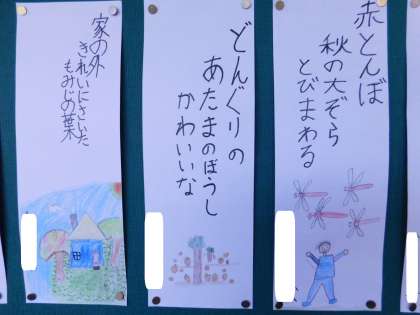 赤とんぼ
秋の大ぞら
とびまわる
どんぐりの
あたまのぼうし
かわいいな
家の外
きれいにさいた
もみじの葉